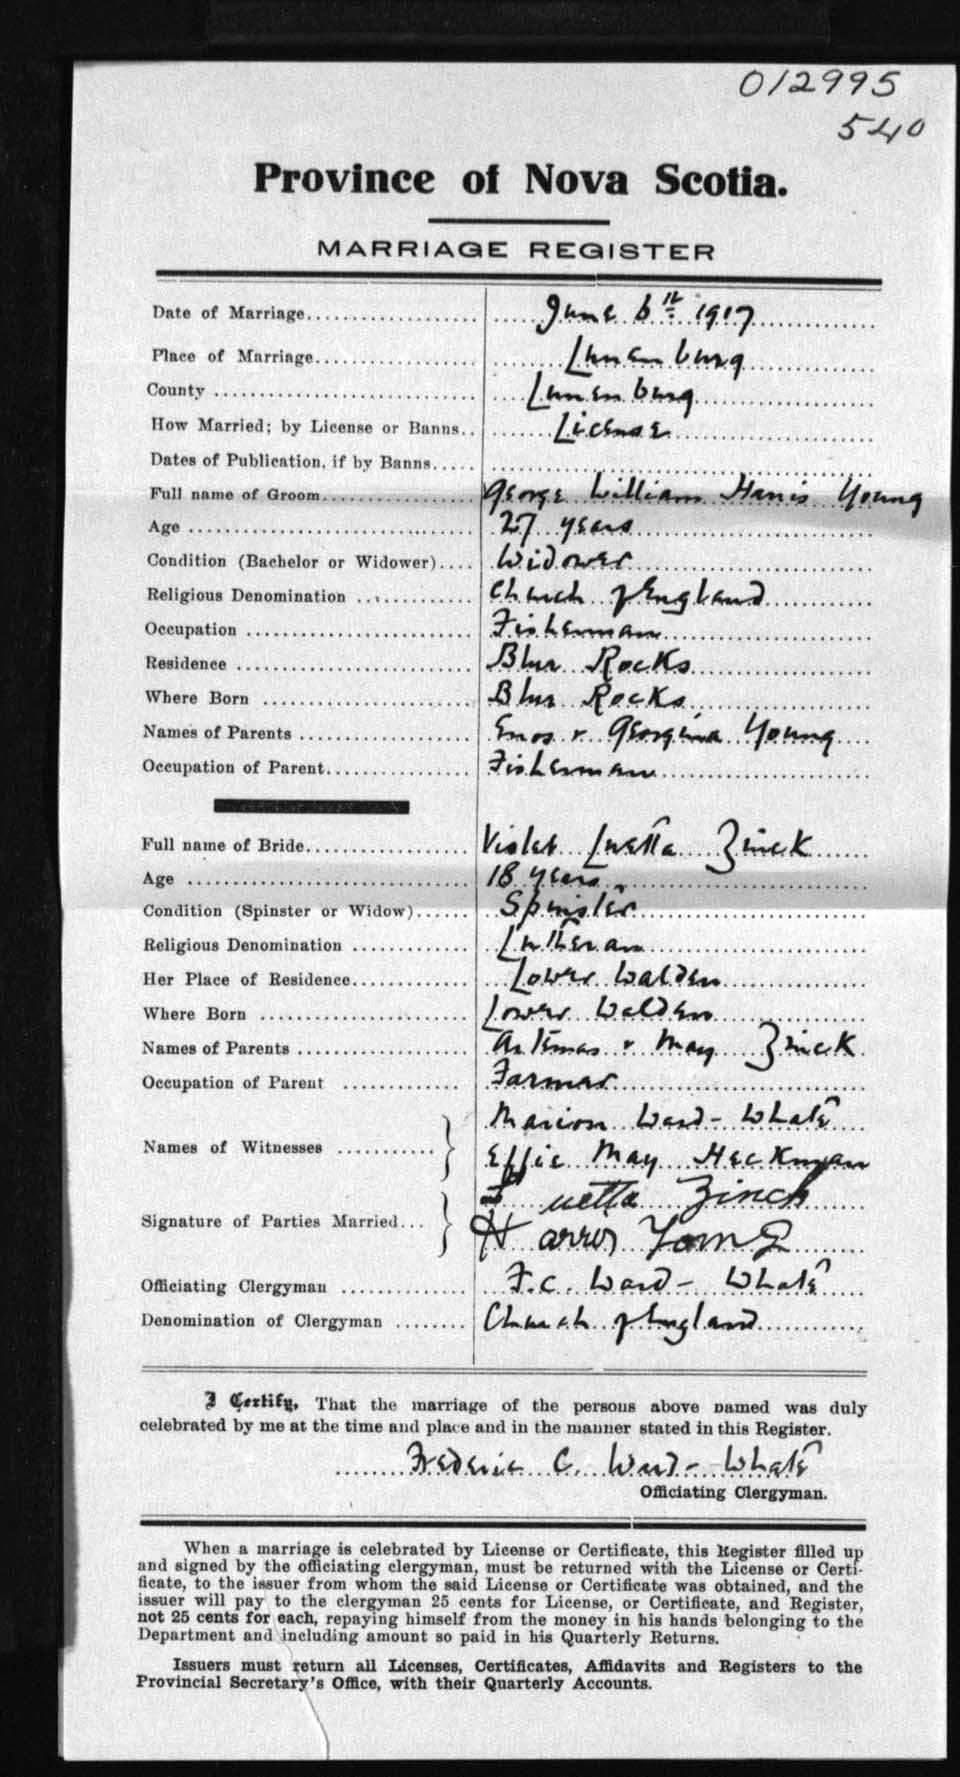 012995
540
Province of Nova Scotia.
MARRIAGE REGISTER
Date of Marriage.................... June 6th 1917
Place of Marriage.................... Lunenburg
County .................... Lunenburg
How Married; by License or Banns.. License
Dates of Publication, if by Banns.....
Full name of Groom.................... George William Harris Young
Age .................... 27 years
Condition (Bachelor or Widower).... Widower
Religious Denomination .................... Church of England
Occupation .................... Fisherman
Residence .................... Blue Rocks
Where Born .................... Blue Rocks
Names of Parents .................... Enos & Georgina Young
Occupation of Parent.................... Fisherman
Full name of Bride.................... Violet Luetta Zinck
Age .................... 18 years
Condition (Spinster or Widow)...... Spinster
Religious Denomination .................... Lutheran
Her Place of Residence.................... Lower Walden
Where Born .................... Lower Walden
Names of Parents .................... Artemas & May Zinck
Occupation of Parent .................... Farmer
Marion Ward-Whate
Names of Witnesses ...........
Effie May Heckman
Luetta Zinck
Signature of Parties Married...
Harres Young
Officiating Clergyman .................... F.C. Ward-Whate
Denomination of Clergyman ........ Church of England
I Certify, That the marriage of the persons above named was duly
celebrated by me at the time and place and in the manner stated in this Register.
Frederic C. Ward-Whate
Officiating Clergyman.
When a marriage is celebrated by License or Certificate, this Register filled up
and signed by the officiating clergyman, must be returned with the License or Certi-
ficate, to the issuer from whom the said License or Certificate was obtained, and the
issuer will pay to the clergyman 25 cents for License, or Certificate, and Register,
not 25 cents for each, repaying himself from the money in his hands belonging to the
Department and including amount so paid in his Quarterly Returns.
Issuers must return all Licenses, Certificates, Affidavits and Registers to the
Provincial Secretary's Office, with their Quarterly Accounts.